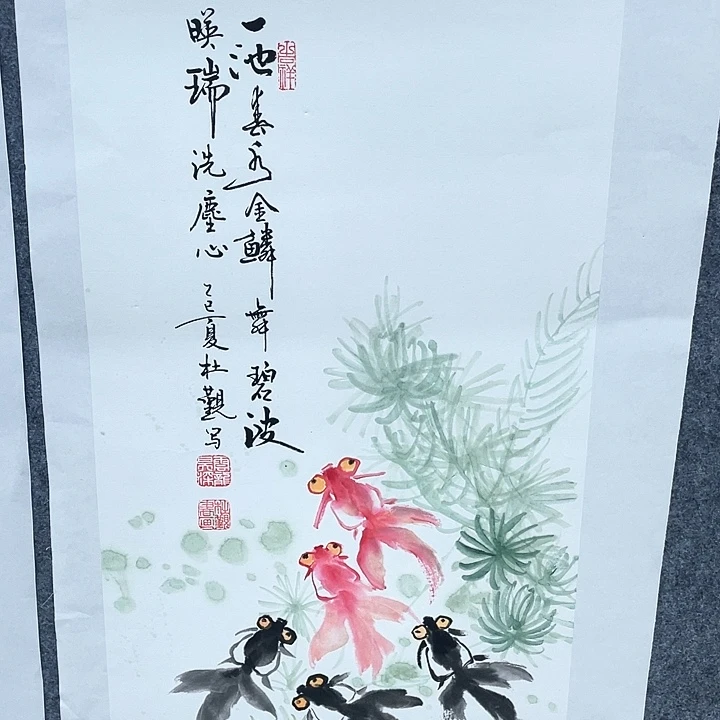 一池春水金鳞舞碧波
映瑞洗塵心 乙巳夏杜觀写